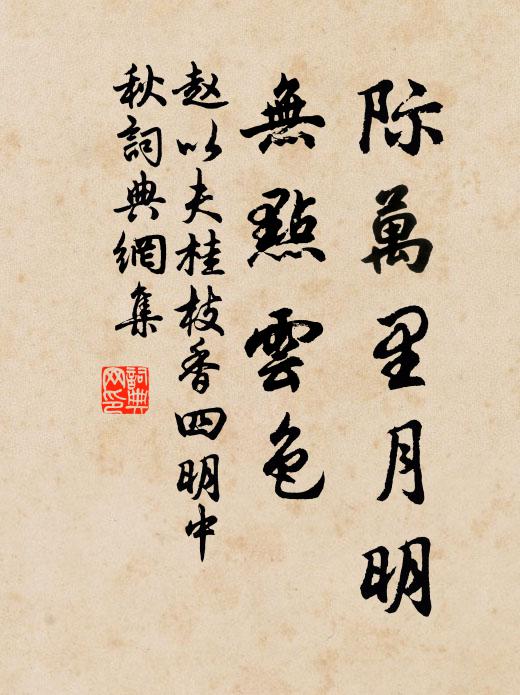 际萬里月明
無點雲色
赵以夫桂枝香四明中
秋詞典網集
詞典
网印